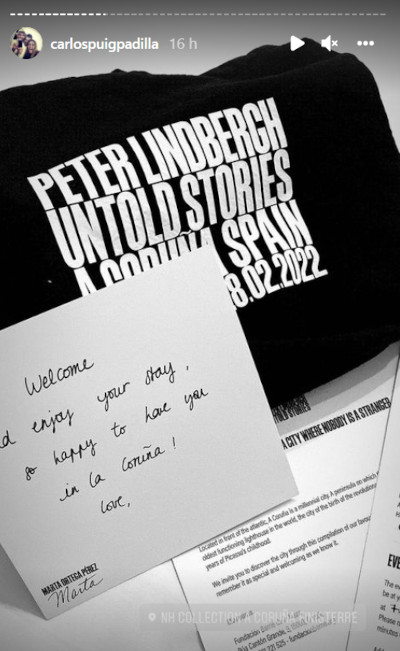 carlospuigpadilla 16 h
PETER LINDBERGH
UNTOLD STORIES
A CORUÑA SPAIN
8.02.2022
Welcome
enjoy your stay,
so happy to have you
in la Coruña!
love,
MARTA ORTEGA PÉREZ
Marta
A CITY WHERE NOBODY IS A STRANGER
Located in front of the atlantic, A Coruña is a millennial city. A peninsula on which
oldest functioning lighthouse in the world, the city of the birth of the
years of Picasso's childhood.
We invite you to discover the city through this compilation of our
remember it as special and welcoming as we know it.
NH COLLECTION A CORUÑA FINISTERRE